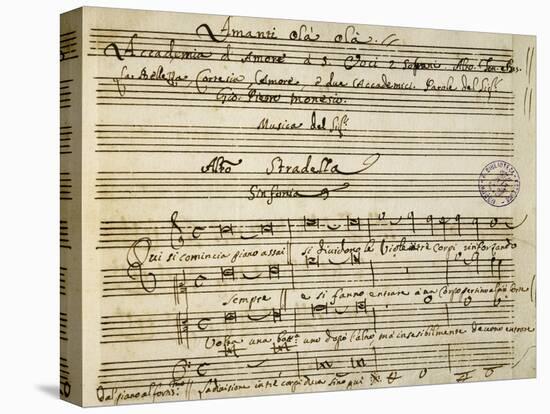 Amanti olà olà.
Accademia d'Amore à 5. Voci 2 Soprani, Alto, Tenor e Bas
so. Bellezza, Cortesia, Amore, e due Accademici. Parole del Sigr.
Gio. Pietro Monesio.
Musica del Sigr.
Alto Stradella
Sinfonia
Qui si comincia piano assai si dividono le Viole trè Corpi rinforzando
sempre e si fanno entrare à un Corpo per uno
Volta una batta. uno dopò l'altro ma insensibilmente devono entrare
Dal piano al forte La divisione in trè corpi dura sino quì
BIBLIOTECA